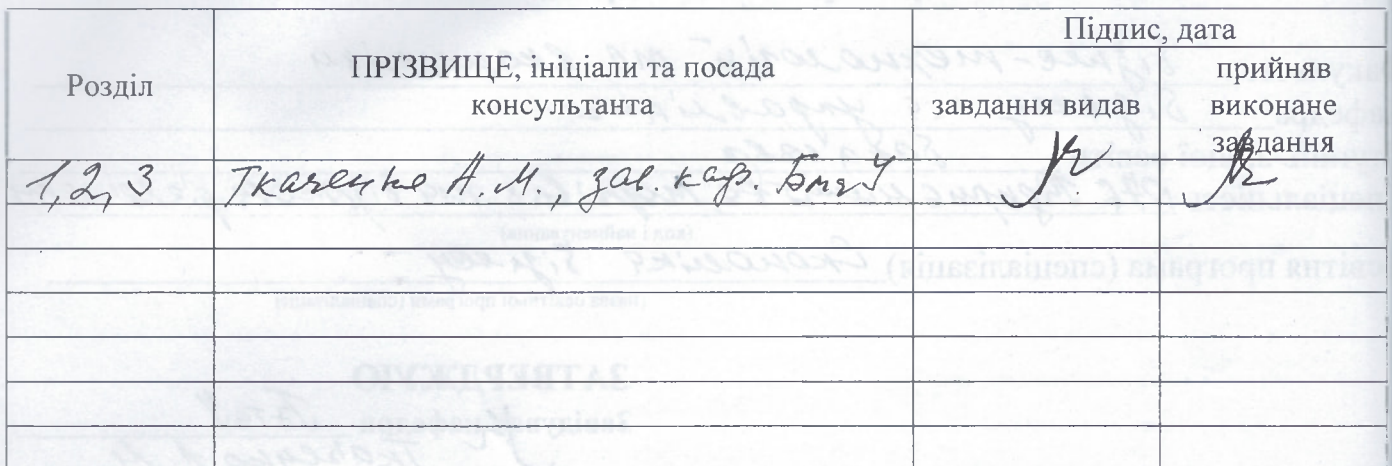 Розділ
ПРІЗВИЩЕ, ініціали та посада
консультанта
Підпис, дата
завдання видав
прийняв
виконане
завдання
1,2,3 Ткаченко А.М., зав. каф.